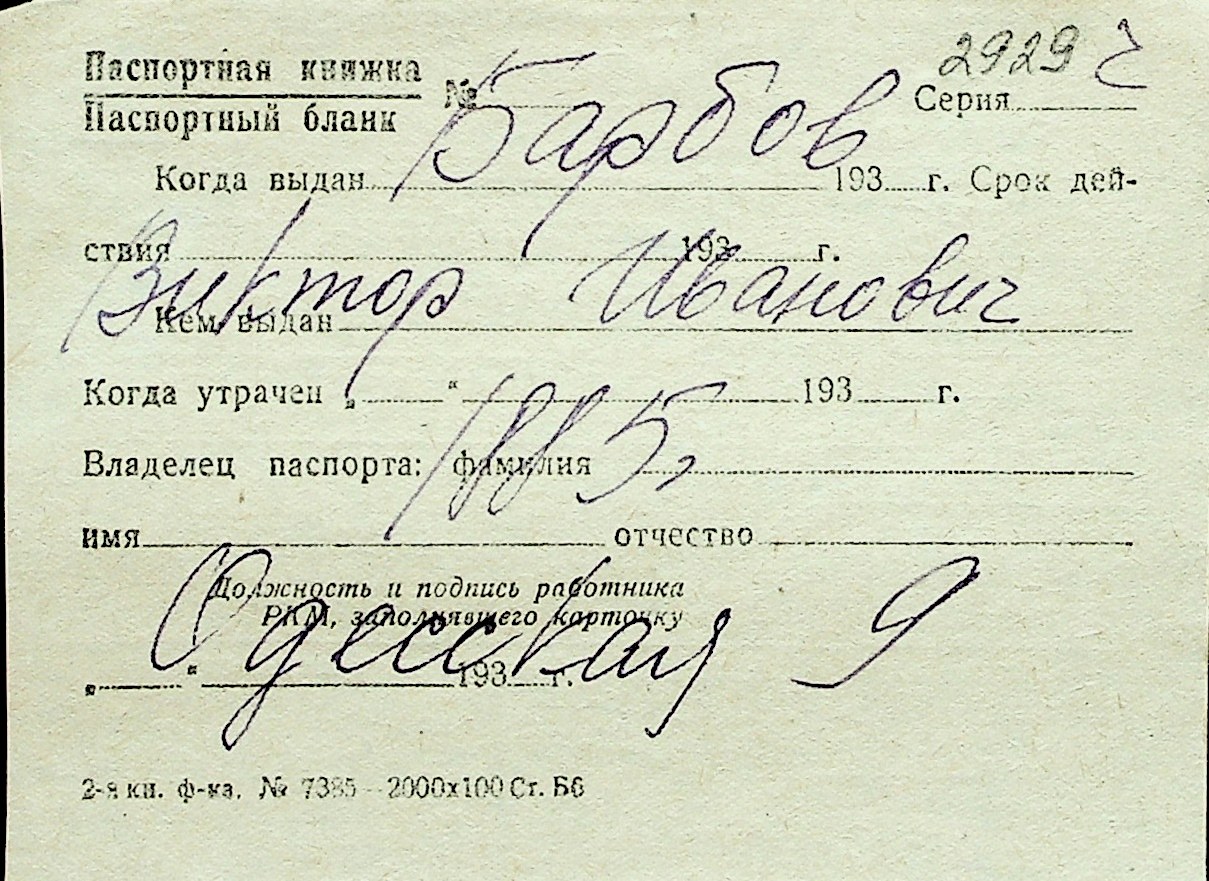 2929 г
Паспортная книжка
Паспортный бланк
№ Серия
Барбов
Когда выдан 193 г. Срок дей-
ствия 193 г.
Виктор Иванович
Кем выдан
Когда утрачен „ “ 193 г.
1885,
Владелец паспорта: фамилия
имя отчество
Должность и подпись работника
РКМ, заполнявшего карточку
Одесская 9
„ “ 193 г.
2-я кн. ф-ка. № 7385—2000x100 Ст. Б6